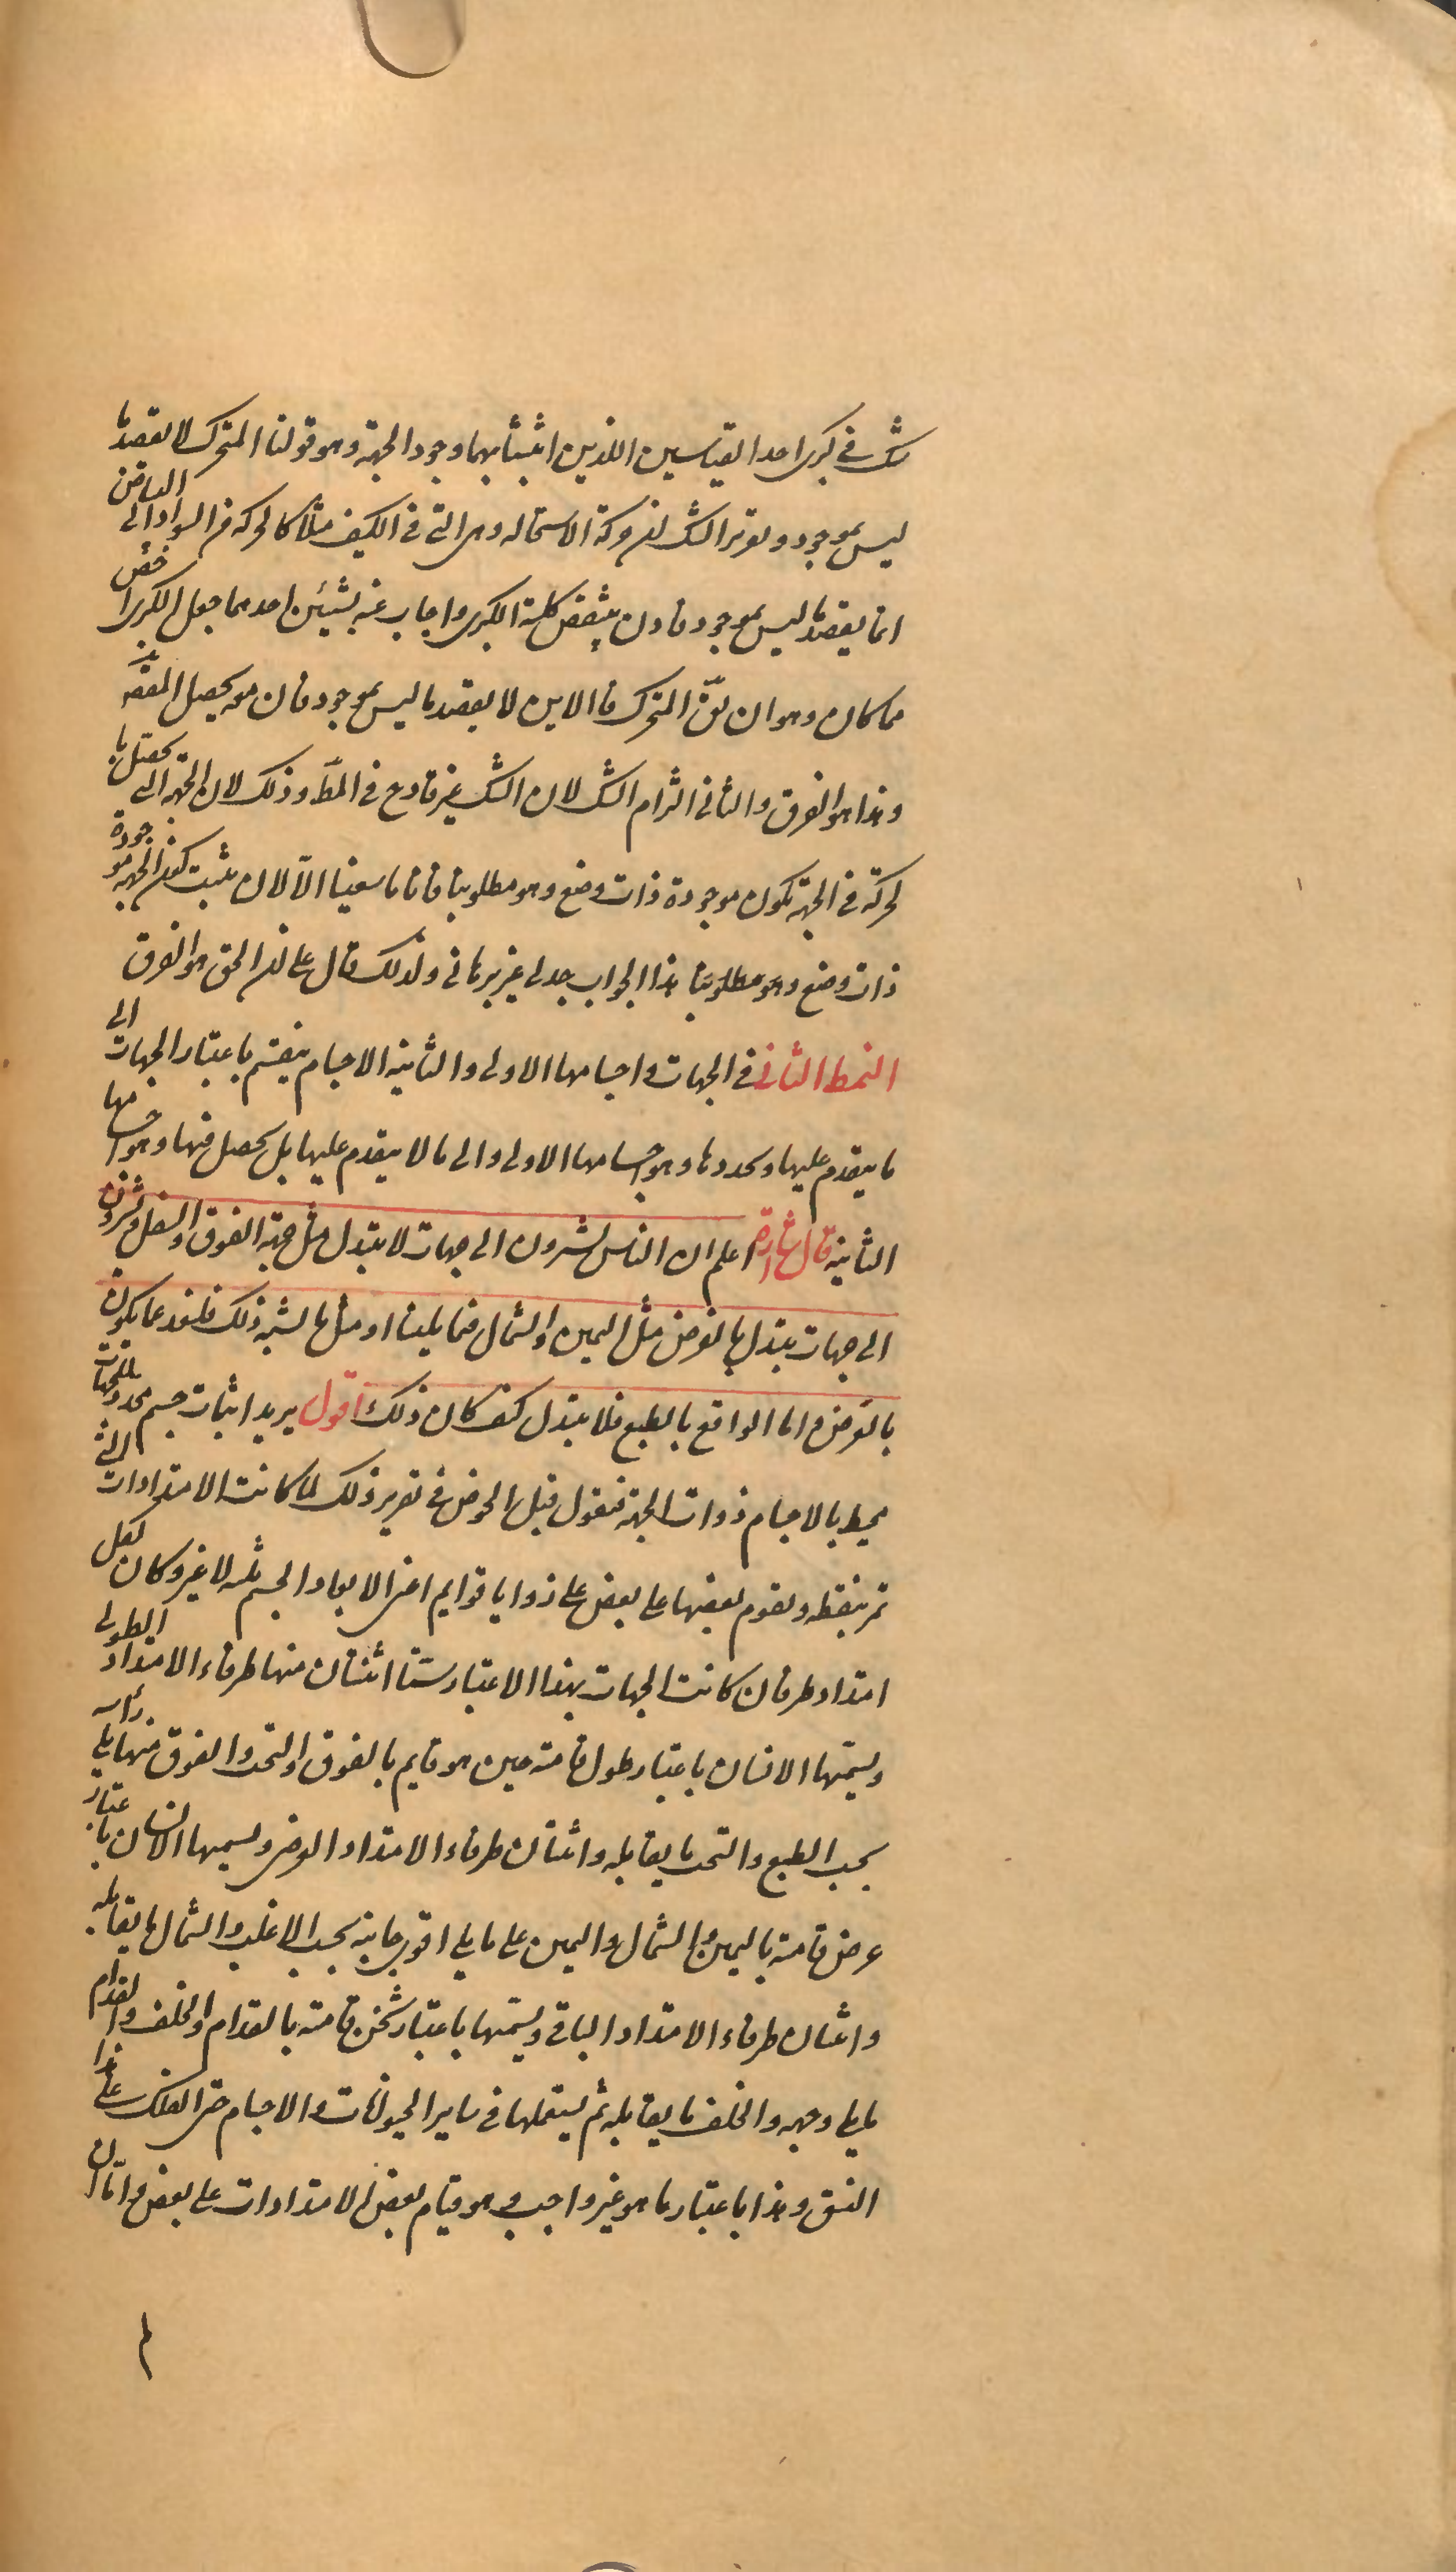 شك في كبرى احد القياسين اللذين اثبتنا بهما وجود الجهة وهو قولنا المتحرك لا يقصد ما
ليس بموجود وتقرير الشك ان حركة الاستحالة وهي التي في الكيف مثلا كالحركة من السواد الى البياض
انما يقصد ما ليس بموجود فاذن ينتقض كلية الكبرى واجاب عنه بشيئين احدهما جعل الكبرى اخص
مما كان وهو ان نقول المتحرك في الاين لا يقصد ما ليس بموجود فان مو يحصل المقصد
وهذا هو الفرق والثاني التزام الشك لان الشك غير قادح في المط وذلك لان الجهة التي يحصل بالـ
لحركة في الجهة تكون موجودة ذات وضع وهو مطلوبنا فانا ما سعينا الا لان نثبت كون الجهة موجودة
ذات وضع وهو مطلوبنا هذا الجواب جدلي غير برهاني ولذلك قال على ان الحق هو الفرق
النمط الثاني في الجهات واجسامها الاولى والثانية الاجسام ينقسم باعتبار الجهات الى
ما يتقدم عليها ويحددها وهو اجسامها الاولى والى ما لا يتقدم عليها بل يحصل فيها وهو اجسامها
الثانية قال اشارة اعلم ان الناس يشيرون الى جهات لا يتبدل مثل جهة الفوق والسفل ويشيرون
الى جهات يتبدل بالفرض مثل اليمين والشمال فيما يلينا او مثل ما يشبه ذلك فلنعد عما يكون
بالفرض واما الواقع بالطبع فلا يتبدل كيف كان ذلك اقول يريد اثبات جسم محدد للجهات
محيط بالاجسام ذوات الجهة فنقول قبل الخوض في تقرير ذلك لما كانت الامتدادات التي
تمر بنقطة ويقوم بعضها على بعض على زوايا قوايم اعني الابعاد الجسم ثلثة لا غير وكان لكل
امتداد طرفان كانت الجهات بهذا الاعتبار ستا اثنتان منها طرفاء الامتداد الطولي
ويسميها الانسان باعتبار طول قامته حين هو قايم بالفوق والتحت والفوق منهما يلي راسه
بحسب الطبع والتحت ما يقابله واثنتان طرفاء الامتداد العرضي ويسميها الانسان باعتبار
عرض قامته باليمين والشمال واليمين على ما يلي اقوى جانبيه بحسب الاغلب والشمال ما يقابله
واثنتان طرفاء الامتداد الباقي ويسميها باعتبار ثخن قامته بالقدام والخلف والقدام
ما يلي وجهه والخلف ما يقابله ثم يستعملها في ساير الحيوانات والاجسام حتى الفلك على هذا
النسق وهذا باعتبار ما هو غير واجب وهو قيام بعض الامتدادات على بعض واما ان